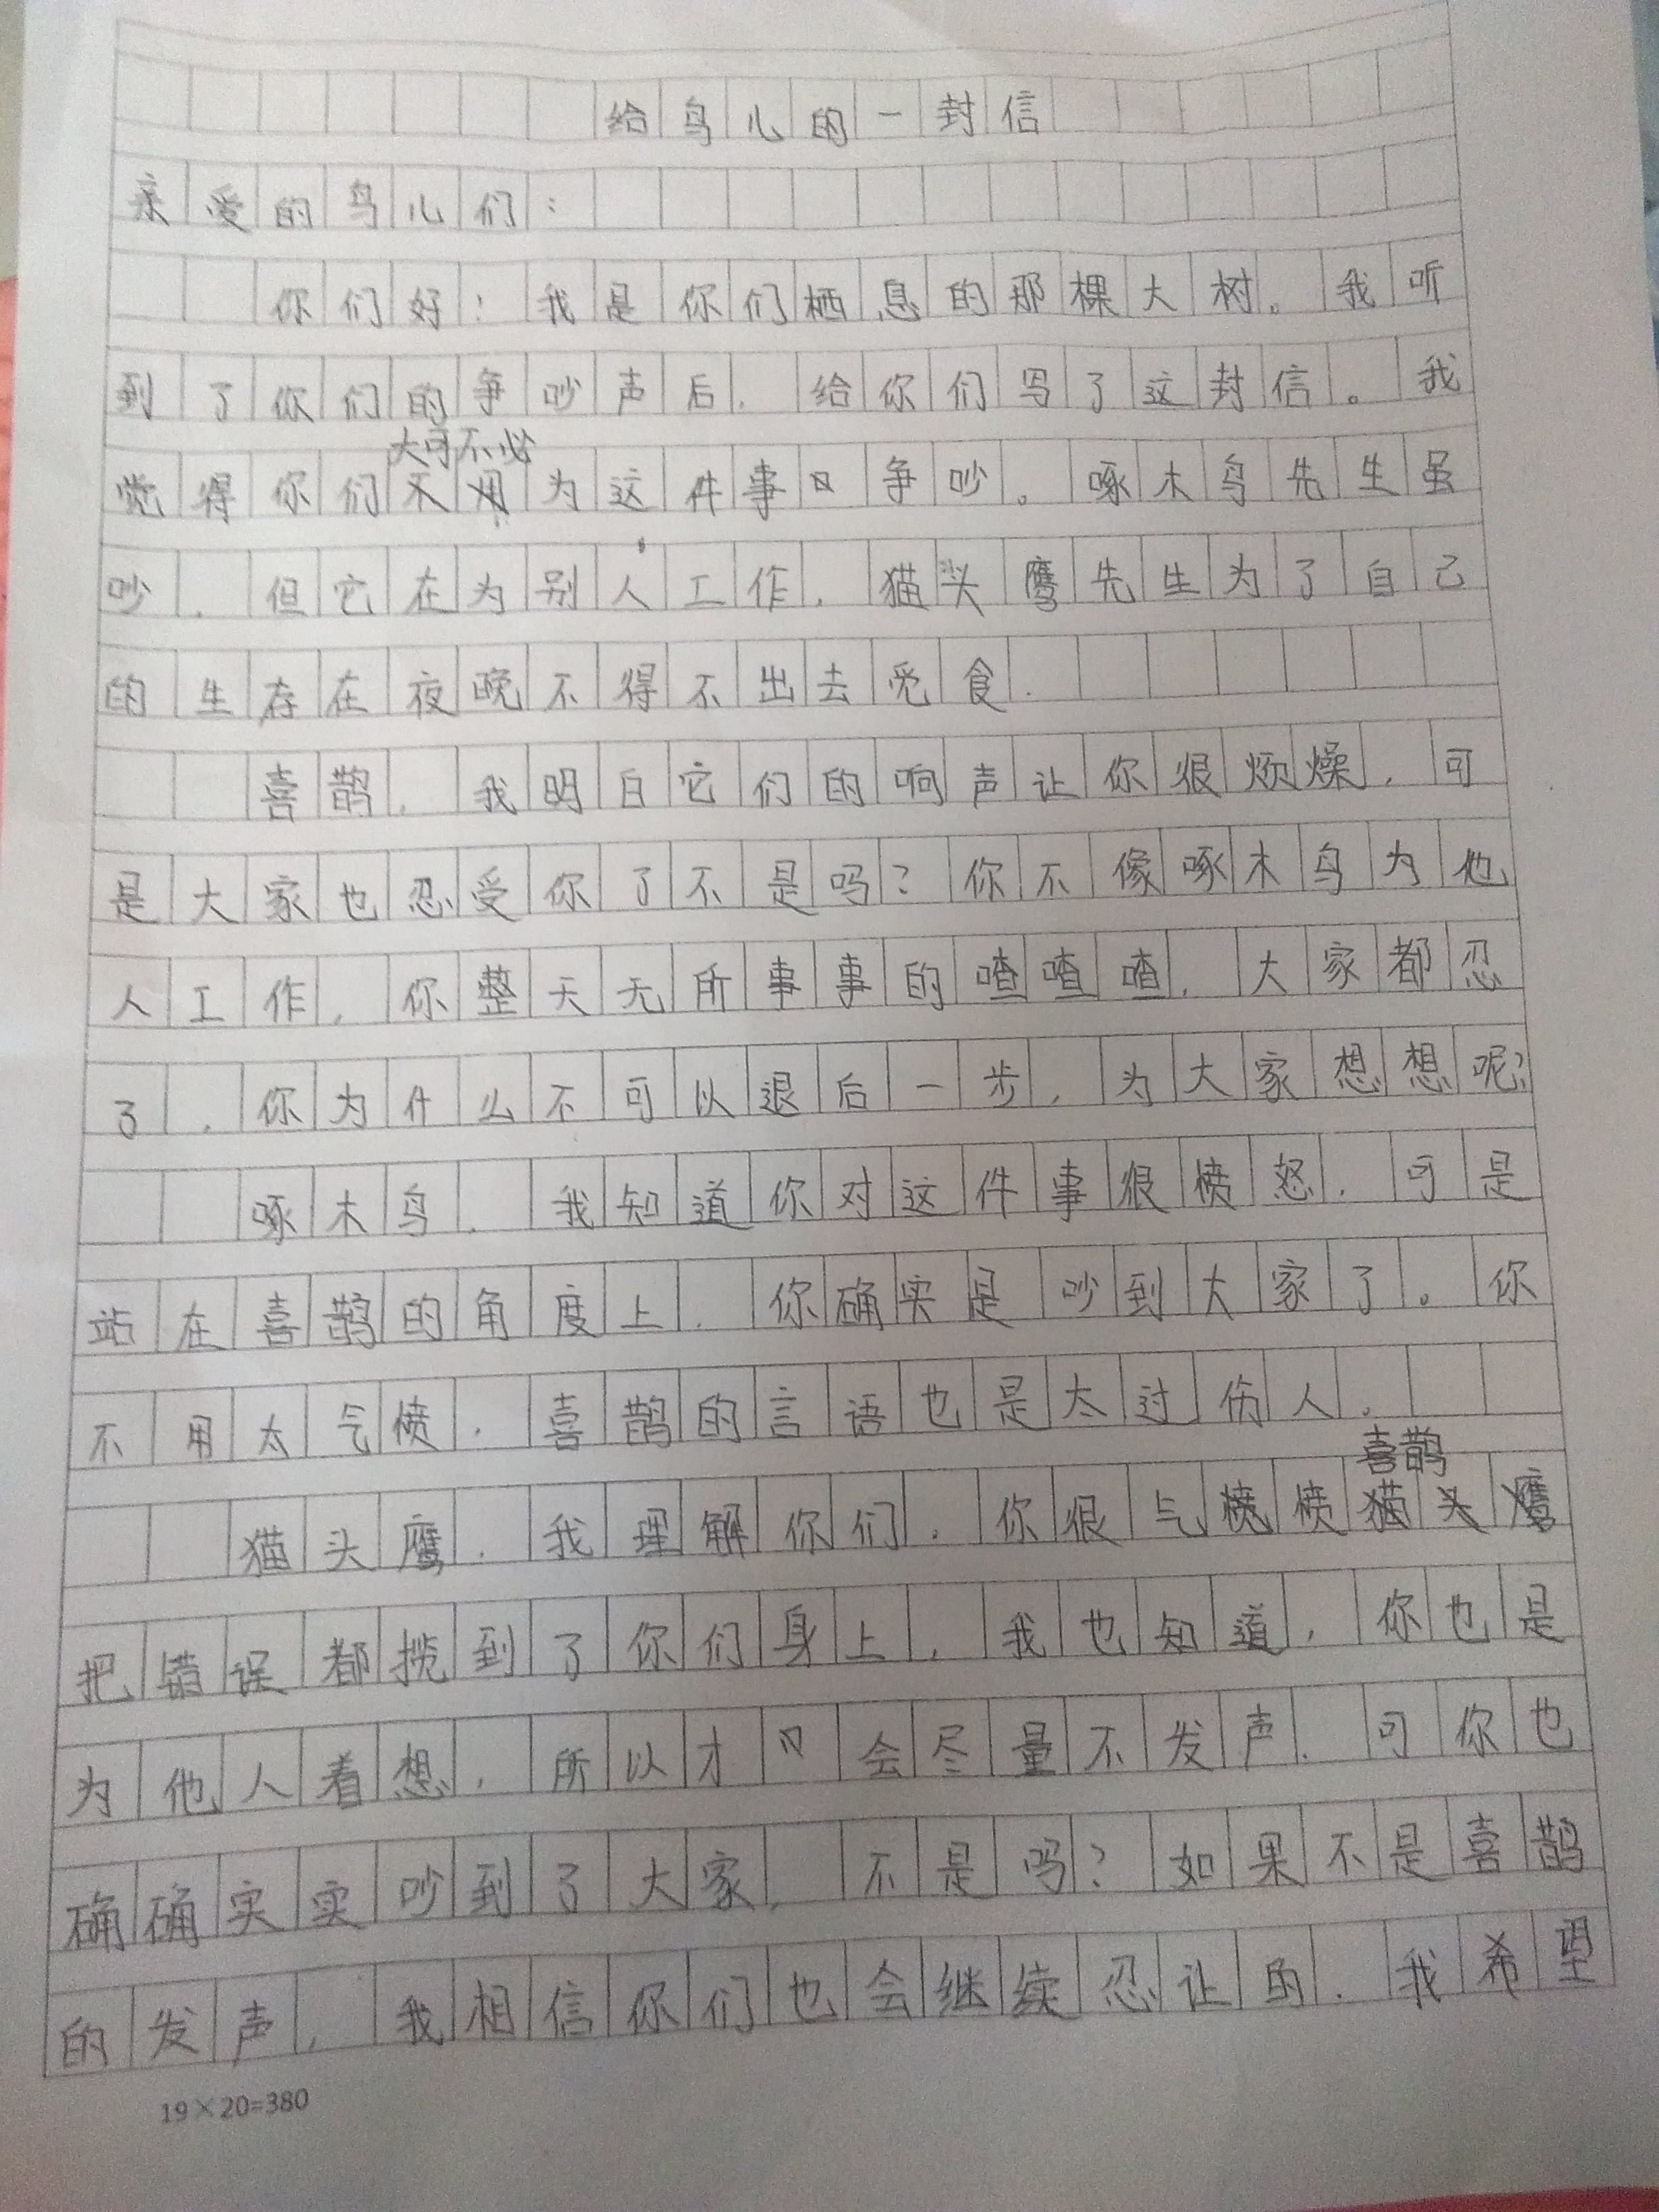 给鸟儿的一封信
亲爱的鸟儿们：
你们好！我是你们栖息的那棵大树。我听
到了你们的争吵声后，给你们写了这封信。我
大可不必
觉得你们不用为这件事 争吵。啄木鸟先生虽
吵，但它在为别人工作，猫头鹰先生为了自己
的生存在夜晚不得不出去觅食.
喜鹊，我明白它们的响声让你很烦燥，可
是大家也忍受你了不是吗？你不像啄木鸟为他
人工作，你整天无所事事的喳喳喳，大家都忍
了，你为什么不可以退后一步，为大家想想呢？
啄木鸟，我知道你对这件事很愤怒，可是
站在喜鹊的角度上，你确实是吵到大家了。你
不用太气愤，喜鹊的言语也是太过伤人。
喜鹊
猫头鹰，我理解你们，你很气愤愤猫头鹰
把错误都揽到了你们身上，我也知道，你也是
为他人着想，所以才 会尽量不发声.可你也
确确实实吵到了大家，不是吗？如果不是喜鹊
的发声，我相信你们也会继续忍让的.我希望
19×20=380